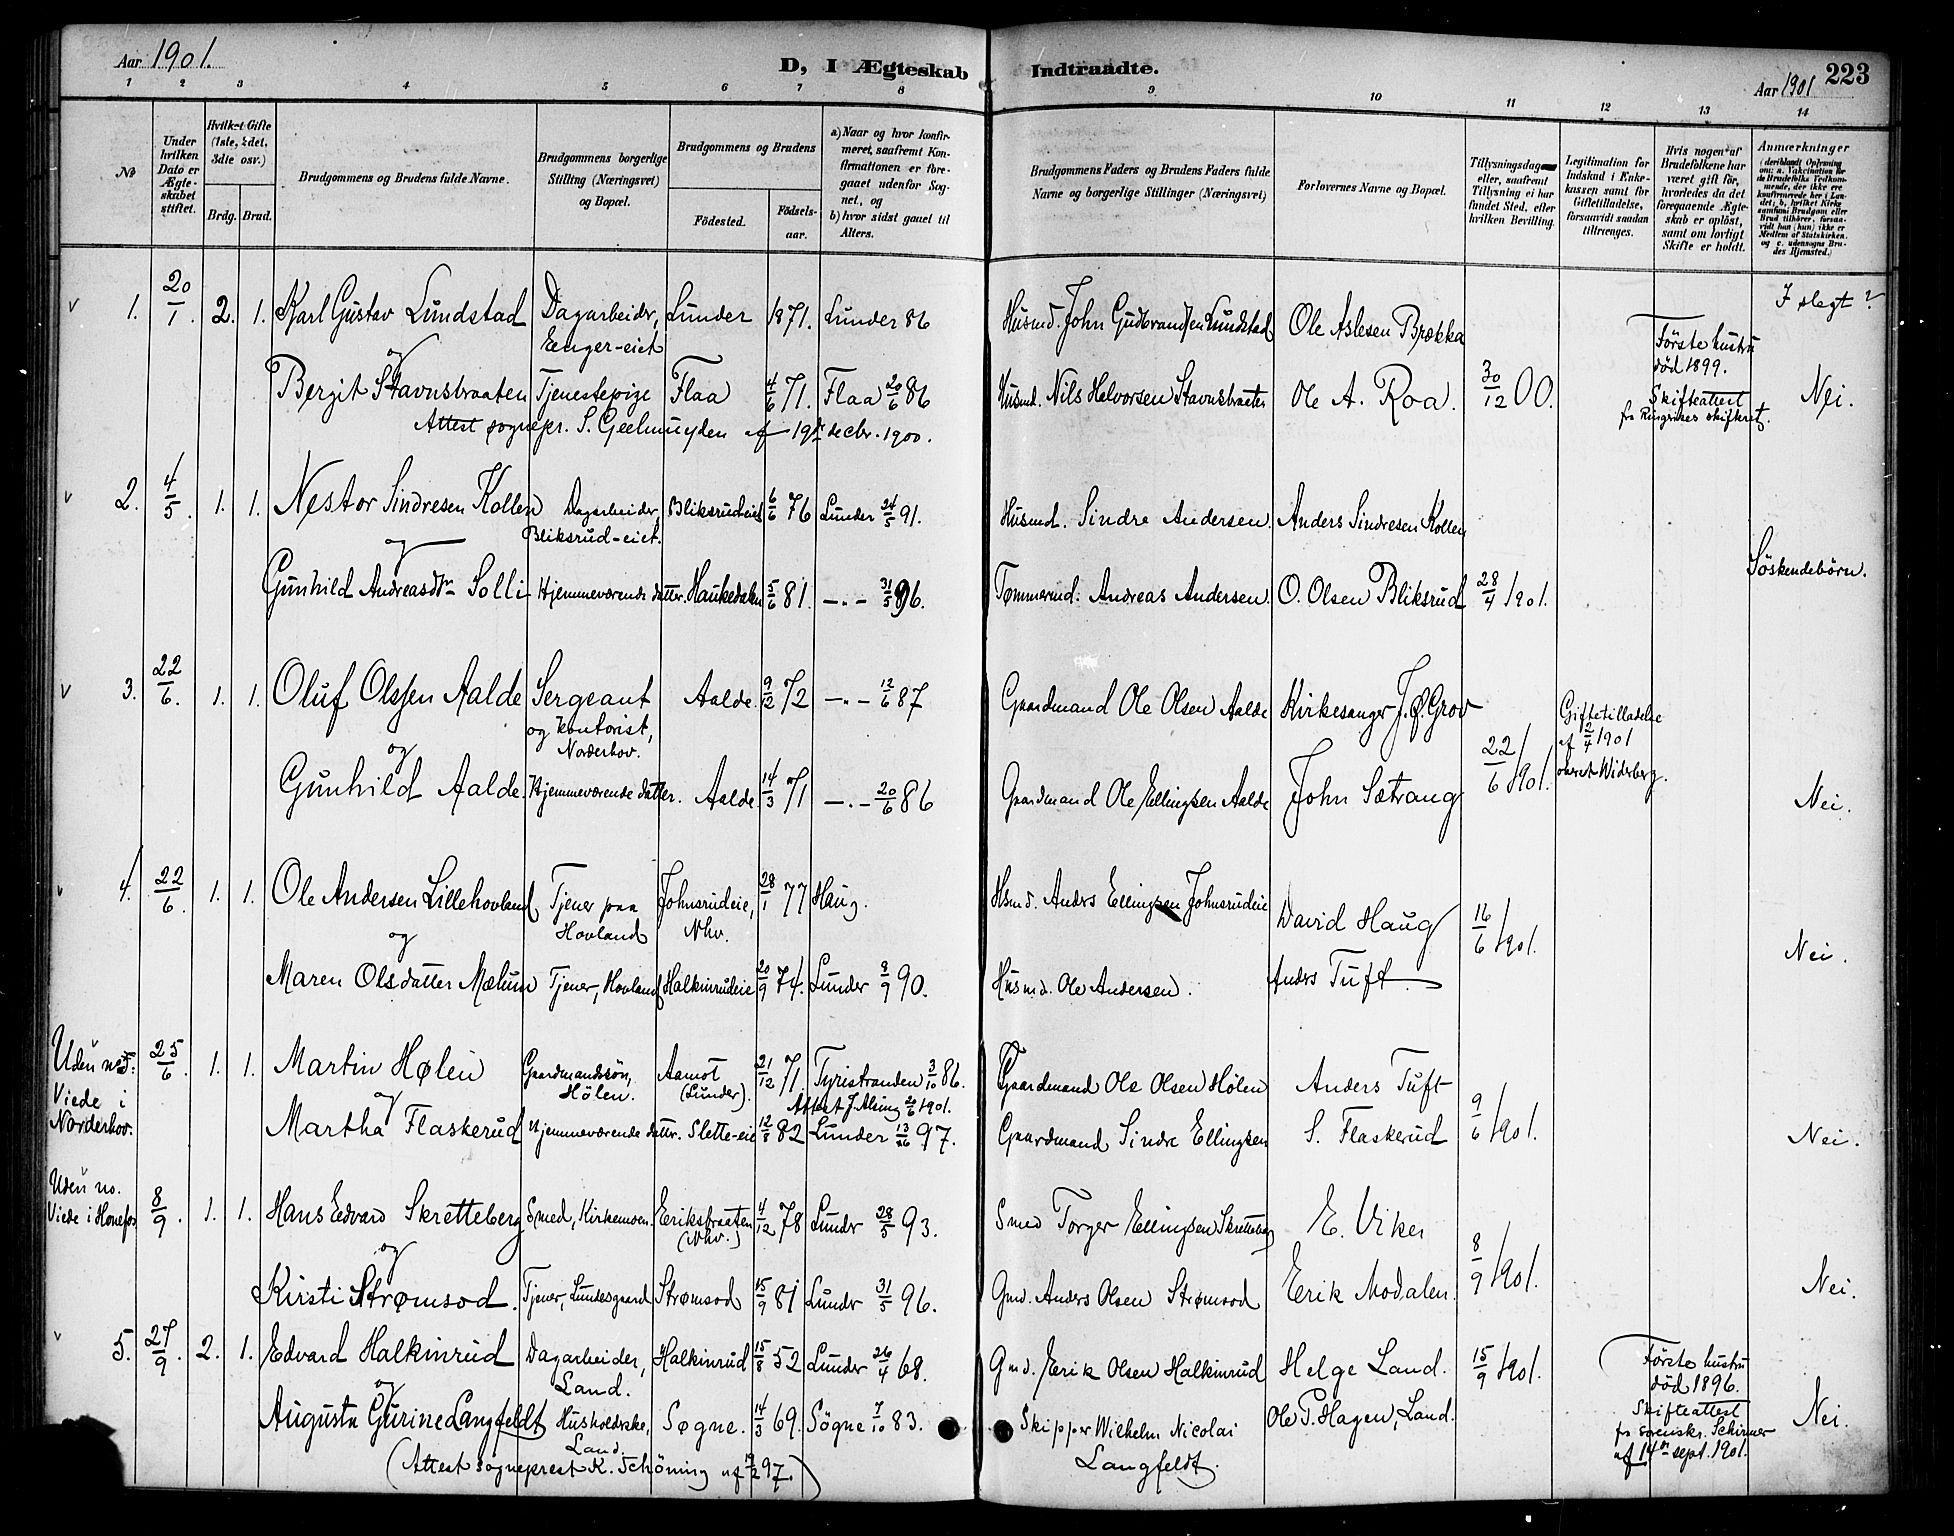 Aar 1901.
D, I Ægteskab Indtraadte.
223
Aar 1901
1 2 3 4 5 6 7 8 9 10 11 12 13 14
No
Under hvilken Dato er Ægteskabet stiftet.
Hvilket Gifte (1ste, 2det, 3die osv.)
Brdg. Brud.
Brudgommens og Brudens fulde Navne.
Brudgommens borgerlige Stilling (Næringsvei) og Bopæl.
Brudgommens og Brudens
Födested.
Födsels-aar.
a) Naar og hvor konfirmeret, saafremt Konfirmationen er foregaaet udenfor Sognet, og
b) hvor sidst gaaet til Alters.
Brudgommens Faders og Brudens Faders fulde Navne og borgerlige Stillinger (Næringsvei)
Forlovernes Navne og Bopæl.
Tillysningsdagene eller, saafremt Tillysning ei har fundet Sted, efter hvilken Bevilling.
Legitimation for Indskud i Enkekassen samt for Giftetilladelse, forsaavidt saadan tiltrænges.
Hvis nogen af Brudefolkene har været gift før, hvorledes da det foregaaende Ægteskab er oplöst, samt om lovligt Skifte er holdt.
Anmærkninger
I slegt ?
1. 20/1. 2. 1. Karl Gustav Lundstad Dagarbeider, Lunder 1871. Lunder 86 Husmd. John Gudbrandsen Lundstad Ole Aslesen Brækka
Eenger-eiet
Første hustru død 1899.
og
Bergit Stavnsbraaten Tjenestepige Flaa 4/6 71. Flaa 20/6 86 Husmd. Nils Helvorsen Stavnsbraaten Ole A. Roa. 30/12 00. Skifteattest fra Ringerikes skifteret. Nei.
Attest sognepr. S. Geelmuyden af 19de decbr. 1900.
2. 4/5. 1. 1. Nestor Sindresen Kollen Dagarbeider, Bliksrudeiet 6/6 76 Lunder 24/5 91. Husmd. Sindre Andersen. Anders Sindresen Kollen
Bliksrud-eiet.
og
Søskendebörn.
Gunhild Andreasdtr Solli Hjemmeværende datter. Haukedalen 5/6 81. —"— 31/5 96. Tømmermd. Andreas Andersen. O. Olsen Bliksrud 28/4 1901.
3. 22/6. 1. 1. Oluf Olssen Aalde Sergeant Aalde. 9/2 72 —"— 12/6 87 Gaardmand Ole Olsen Aalde Kirkesanger J. Ø. Grov
og kontorist,
Norderhov.
Giftetilladelse af 2/4 1901 oberst Widerberg.
og
Gunhild Aalde. Hjemmeværende datter. Aalde 14/3 71 —"— 20/6 86 Gaardmand Ole Ellingsen Aalde John Sætrang 22/6 1901. Nei.
4. 22/6. 1. 1. Ole Andersen Lillehovland Tjener paa Johnsrudeie, 28/1 77 Haug. Hsmd. Anders Ellingsen Johnsrudeie David Haug 16/6 1901.
Hovland Nhv.
og
Nei.
Maren Olsdatter Mælum Tjener, Hovland Halkinrudeie 20/9 74. Lunder 8/9 90. Husmd. Ole Andersen. Anders Tuft
Uden no. 25/6. 1. 1. Martin Hølen Gaardmandssön, Aamot 21/12 71. Tyristranden 3/10 86. Gaardmand Ole Olsen Hölen Anders Tuft
Viede i Norderhov.
Hölen. (Lunder). Attest J. Alsing 20/6 1901.
og
Martha Flaskerud Hjemmeværende dattr. Slette-eie 12/8 82 Lunder 13/6 97. Gaardmand Sindre Ellingsen S. Flaskerud 9/6 1901. Nei.
Uden no.
Viede i Honefos 8/9. 1. 1. Hans Edvard Skretteberg Smed, Kirkemoen. Eeriksbraaten 4/12 78 Lunder 28/5 93. Smed Torger Ellingsen Skretteberg E. Viker
(Nhv.)
og
Kirsti Strømsod. Tjener, Lundesgaard Strømsod 15/9 81 Lunder 31/5 96. Gmd. Anders Olsen Strømsod Erik Modalen. 8/9 1901. Nei.
5. 27/9. 2. 1. Edvard Halkinrud Dagarbeider, Halkinrud 15/8 52 Lunder 26/4 68. Gmd. Erik Olsen Halkinrud Helge Land. 15/9 1901. Første hustru död 1896.
Land.
og
Augusta Gurine Langfeldt Husholdske, Søgne. 14/3 69. Søgne 7/10 83. Skipper Wilhelm Nicolai Ole P. Hagen, Land. Skifteattest fra sorenskr. Schirmer af 14de sept. 1901. Nei.
Land. Langfeldt.
(Attest sogneprest K. Schöning af 19/2 97.)